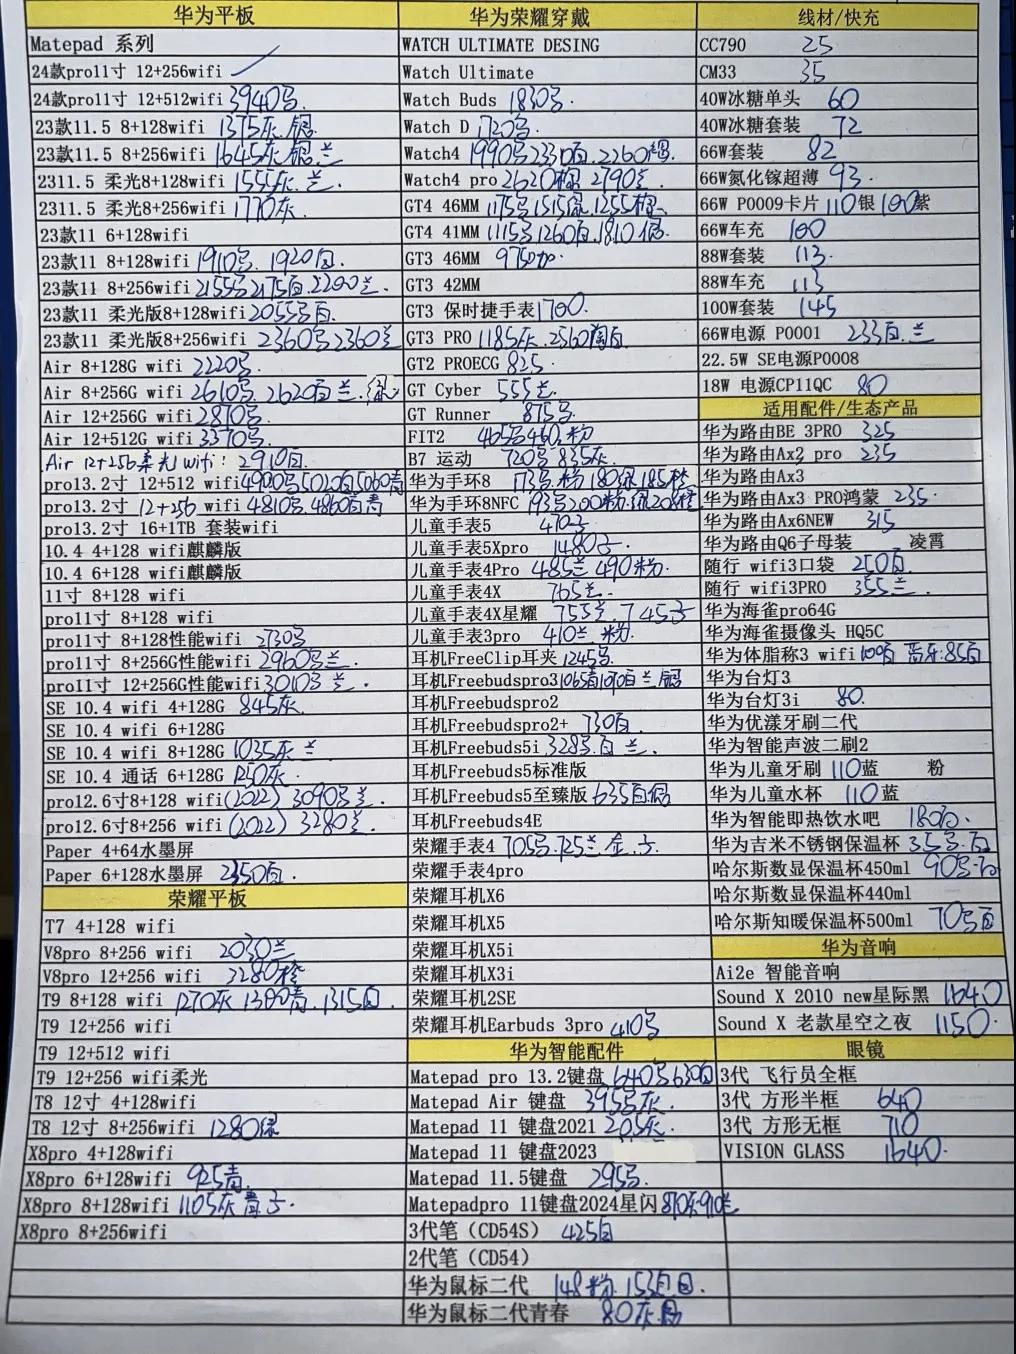 华为平板
Matepad 系列
24款pro11寸 12+256wifi
24款pro11寸 12+512wifi 3940号
23款11.5 8+128wifi 1375灰.银
23款11.5 8+256wifi 1645灰银兰
2311.5 柔光8+128wifi 1555灰.兰.
2311.5 柔光8+256wifi 1770灰
23款11 6+128wifi
23款11 8+128wifi 1910号. 1920白.
23款11 8+256wifi 2155号2175白.2200兰.
23款11 柔光版8+128wifi 2055号白
23款11 柔光版8+256wifi 2360号2360兰
Air 8+128G wifi 2220号
Air 8+256G wifi 2610号. 2620白兰.
Air 12+256G wifi 2870号
Air 12+512G wifi 3370号.
Air 12+256柔光wifi: 2910白
pro13.2寸 12+512 wifi 4990号5020白5060青
pro13.2寸 12+256 wifi 4810号.4860白青
pro13.2寸 16+1TB 套装wifi
10.4 4+128 wifi麒麟版
10.4 6+128 wifi麒麟版
11寸 8+128 wifi
pro11寸 8+128 wifi
pro11寸 8+128性能wifi 2730号
pro11寸 8+256G性能wifi 2960号兰.
pro11寸 12+256G性能wifi 3010号兰.
SE 10.4 wifi 4+128G 845灰.
SE 10.4 wifi 6+128G
SE 10.4 wifi 8+128G 1035灰兰
SE 10.4 通话 6+128G 1250灰.
pro12.6寸8+128 wifi(2022) 3090号兰.
pro12.6寸8+256 wifi(2022) 3280兰.
Paper 4+64水墨屏
Paper 6+128水墨屏 2350白.
荣耀平板
T7 4+128 wifi
V8pro 8+256 wifi 2030兰
V8pro 12+256 wifi 3280橙
T9 8+128 wifi 1270灰 1300青.1315白.
T9 12+256 wifi
T9 12+512 wifi
T9 12+256 wifi柔光
T8 12寸 4+128wifi
T8 12寸 8+256wifi 1280绿
X8pro 4+128wifi
X8pro 6+128wifi 925青.
X8pro 8+128wifi 1105灰青.
X8pro 8+256wifi
华为荣耀穿戴
WATCH ULTIMATE DESING
Watch Ultimate
Watch Buds 1830号.
Watch D 1720号.
Watch4 1990号2330白.2260棕.
Watch4 pro 2620棕 2790兰.
GT4 46MM 1175号1515绿.1255棕
GT4 41MM 1115号1260白.1810银.
GT3 46MM 975
GT3 42MM
GT3 保时捷手表1700.
GT3 PRO 1185灰.2560陶白
GT2 PROECG 825.
GT Cyber 555兰.
GT Runner 875号.
FIT2 465号460.粉
B7 运动 720号835灰.
华为手环8 173号.粉180绿185橙
华为手环8NFC 193号200粉.绿208橙
儿童手表5 470
儿童手表5Xpro 1480
儿童手表4Pro 485兰490粉.
儿童手表4X 765兰.
儿童手表4X星耀 755兰.745
儿童手表3pro 410兰.粉.
耳机FreeClip耳夹 1245号.
耳机Freebudspro3 1065青1090白兰.银
耳机Freebudspro2
耳机Freebudspro2+ 730白.
耳机Freebuds5i 328号.白兰.
耳机Freebuds5标准版
耳机Freebuds5至臻版 635白银
耳机Freebuds4E
荣耀手表4 705号.725兰金.
荣耀手表4pro
荣耀耳机X6
荣耀耳机X5
荣耀耳机X5i
荣耀耳机X3i
荣耀耳机2SE
荣耀耳机Earbuds 3pro 410号
华为智能配件
Matepad pro 13.2键盘 640号630白
Matepad Air 键盘 395号灰.
Matepad 11 键盘2021 205灰.
Matepad 11 键盘2023
Matepad 11.5键盘 295号.
Matepadpro 11键盘2024星闪 870灰910兰
3代笔（CD54S） 425白
2代笔（CD54）
华为鼠标二代 148粉.153白
华为鼠标二代青春 80灰.
线材/快充
CC790 25
CM33 35
40W冰糖单头 60
40W冰糖套装 72
66W套装 82
66W氮化镓超薄 93.
66W P0009卡片 110银 100紫
66W车充 100
88W套装 113.
88W车充 113
100W套装 145
66W电源 P0001 233白.兰
22.5W SE电源P0008
18W 电源CP11QC 80
适用配件/生态产品
华为路由BE 3PRO 325
华为路由Ax2 pro 235
华为路由Ax3
华为路由Ax3 PRO鸿蒙 235.
华为路由Ax6NEW 315
华为路由Q6子母装 凌霄
随行 wifi3口袋 250白.
随行 wifi3PRO 355兰.
华为海雀pro64G
华为海雀摄像头 HQ5C
华为体脂称3 wifi 100白 蓝牙:85白
华为台灯3
华为台灯3i 80.
华为优漾牙刷二代
华为智能声波二刷2
华为儿童牙刷 110蓝 粉
华为儿童水杯 110蓝
华为智能即热饮水吧 180白.
华为吉米不锈钢保温杯 35号.白
哈尔斯数显保温杯450ml 90号.白
哈尔斯数显保温杯440ml
哈尔斯知暖保温杯500ml 70号白
华为音响
Ai2e 智能音响
Sound X 2010 new星际黑 1640
Sound X 老款星空之夜 1150.
眼镜
3代 飞行员全框
3代 方形半框 640
3代 方形无框 710
VISION GLASS 1640.